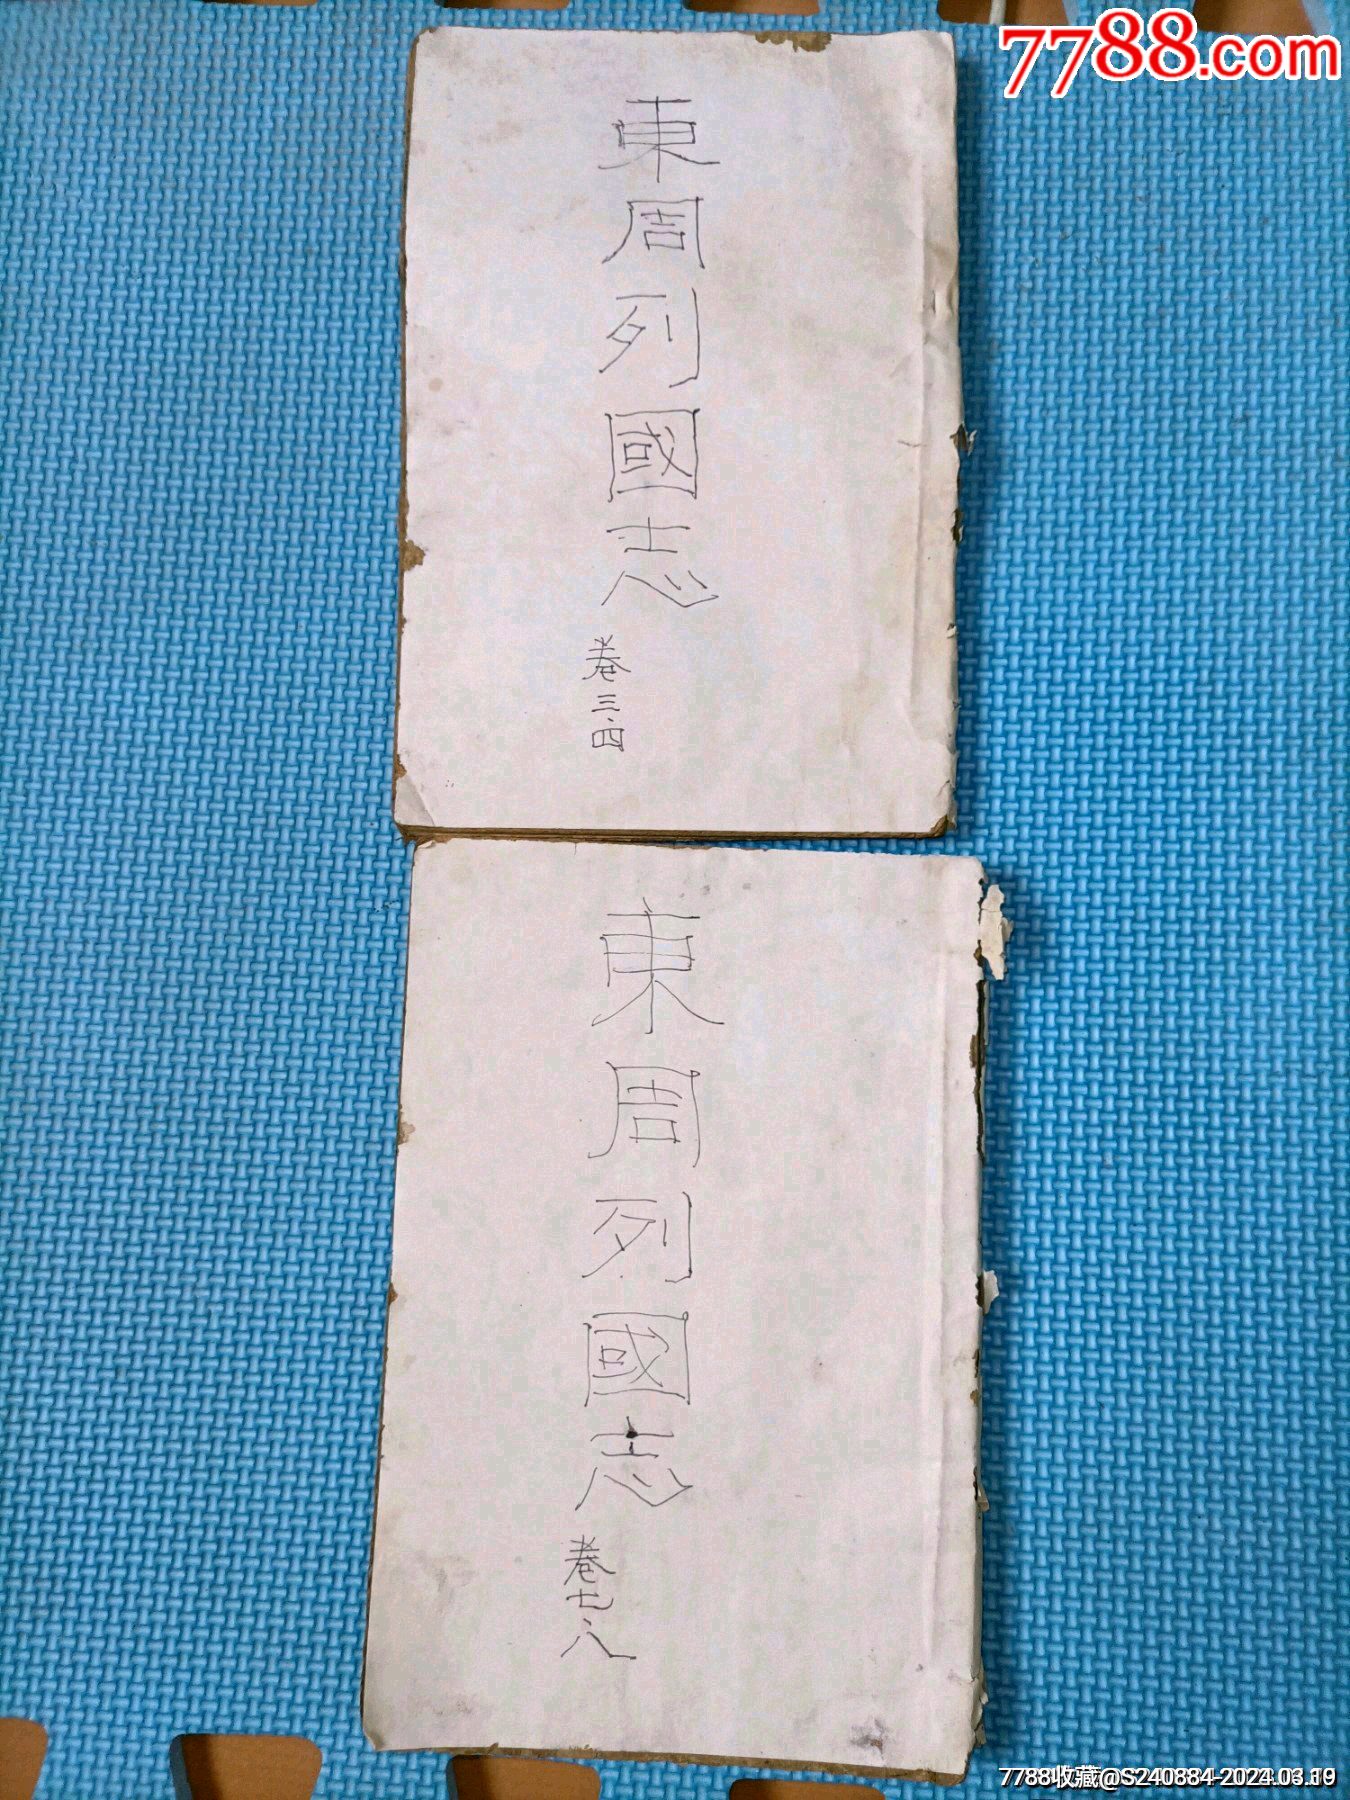 7788.com
東周列國志
卷三.四
東周列國志
卷七.八
7788收藏@S240884-2024.03.19